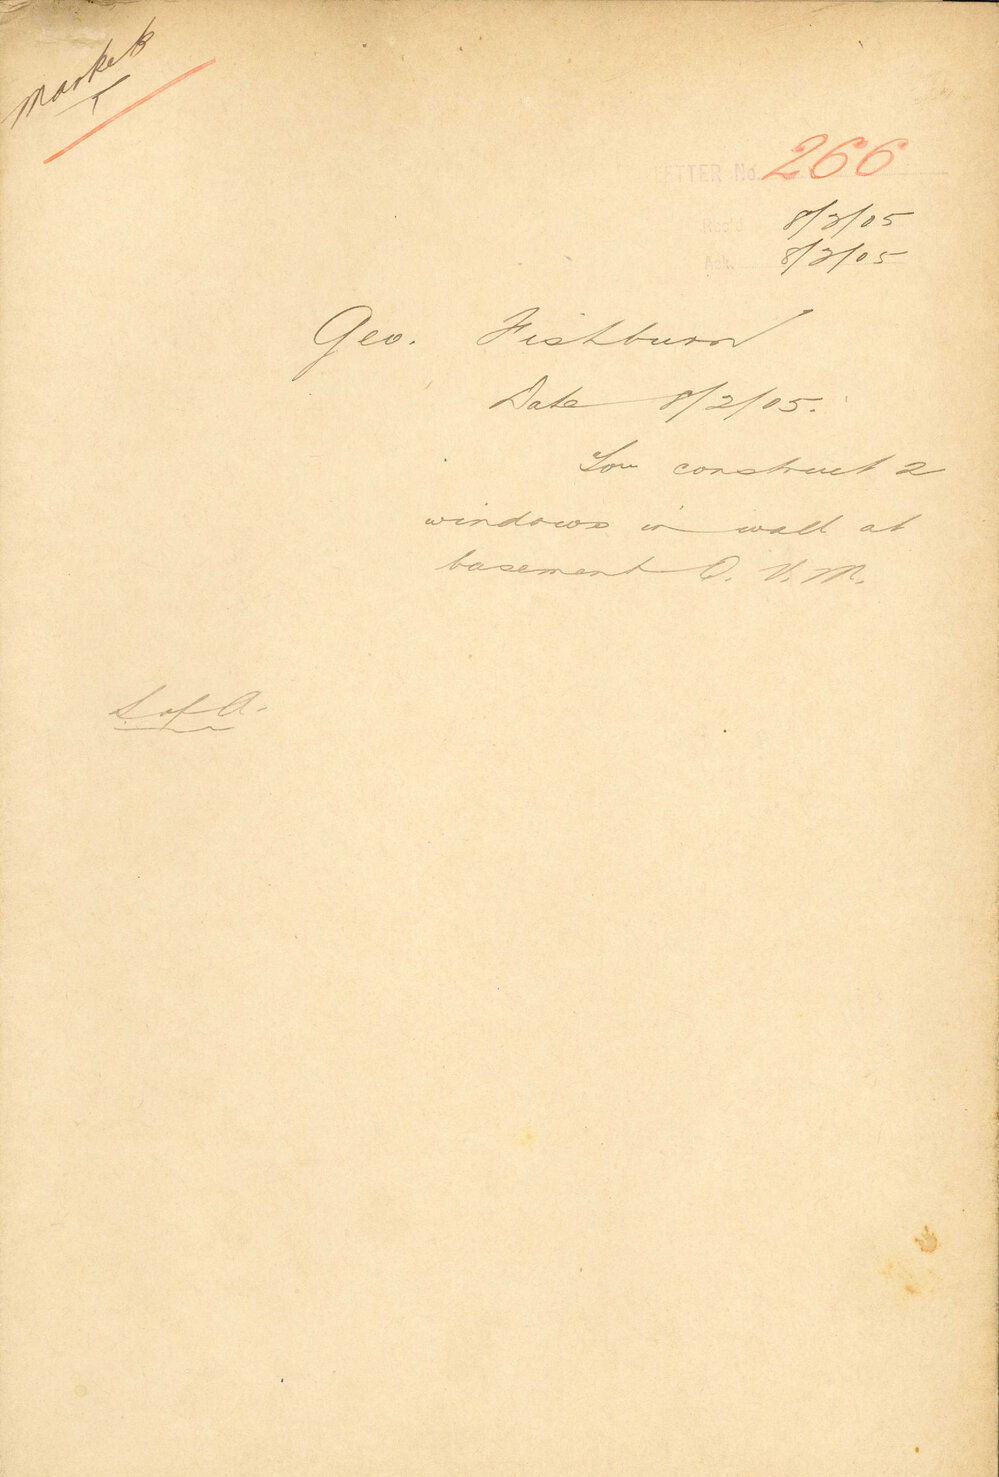 Markets
LETTER No. 266
Rec'd 8/2/05
Ack. 8/2/05
Geo. Fishburn
Date 8/2/05.
To construct 2
windows in wall at
basement Q. V. M.
S of A.